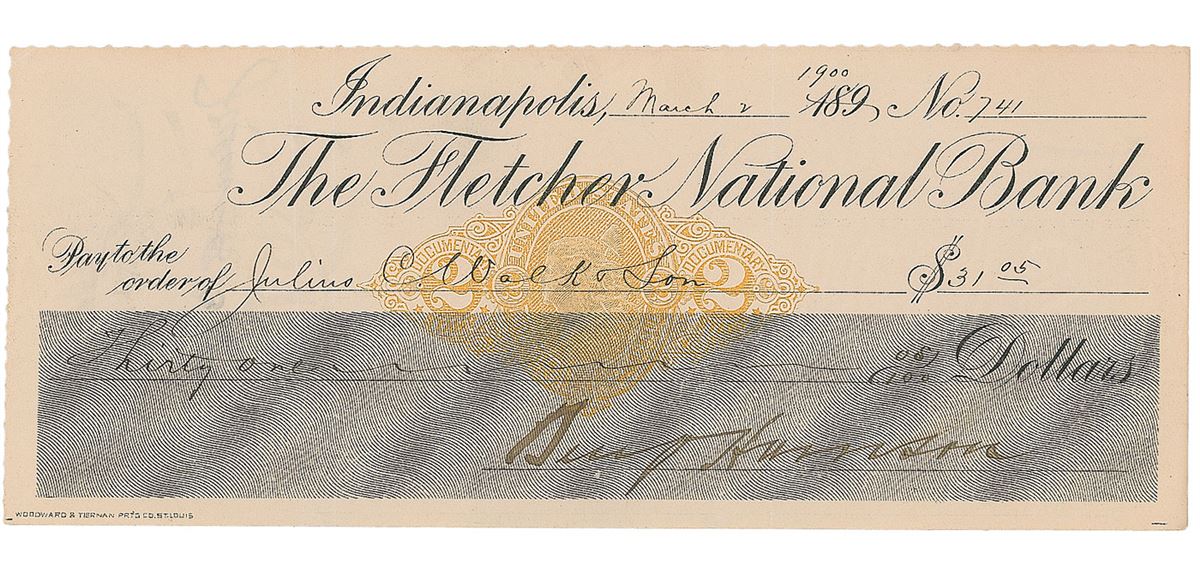 1900
Indianapolis, March 2 189 No. 741
The Fletcher National Bank
UNITED STATES
DOCUMENTARY DOCUMENTARY
Pay to the
order of Julius C. Walk & Son $31 05
2 2
Thirty One 05/100 Dollars
Benj Harrison
WOODWARD & TIERNAN PRT'G CO. ST. LOUIS